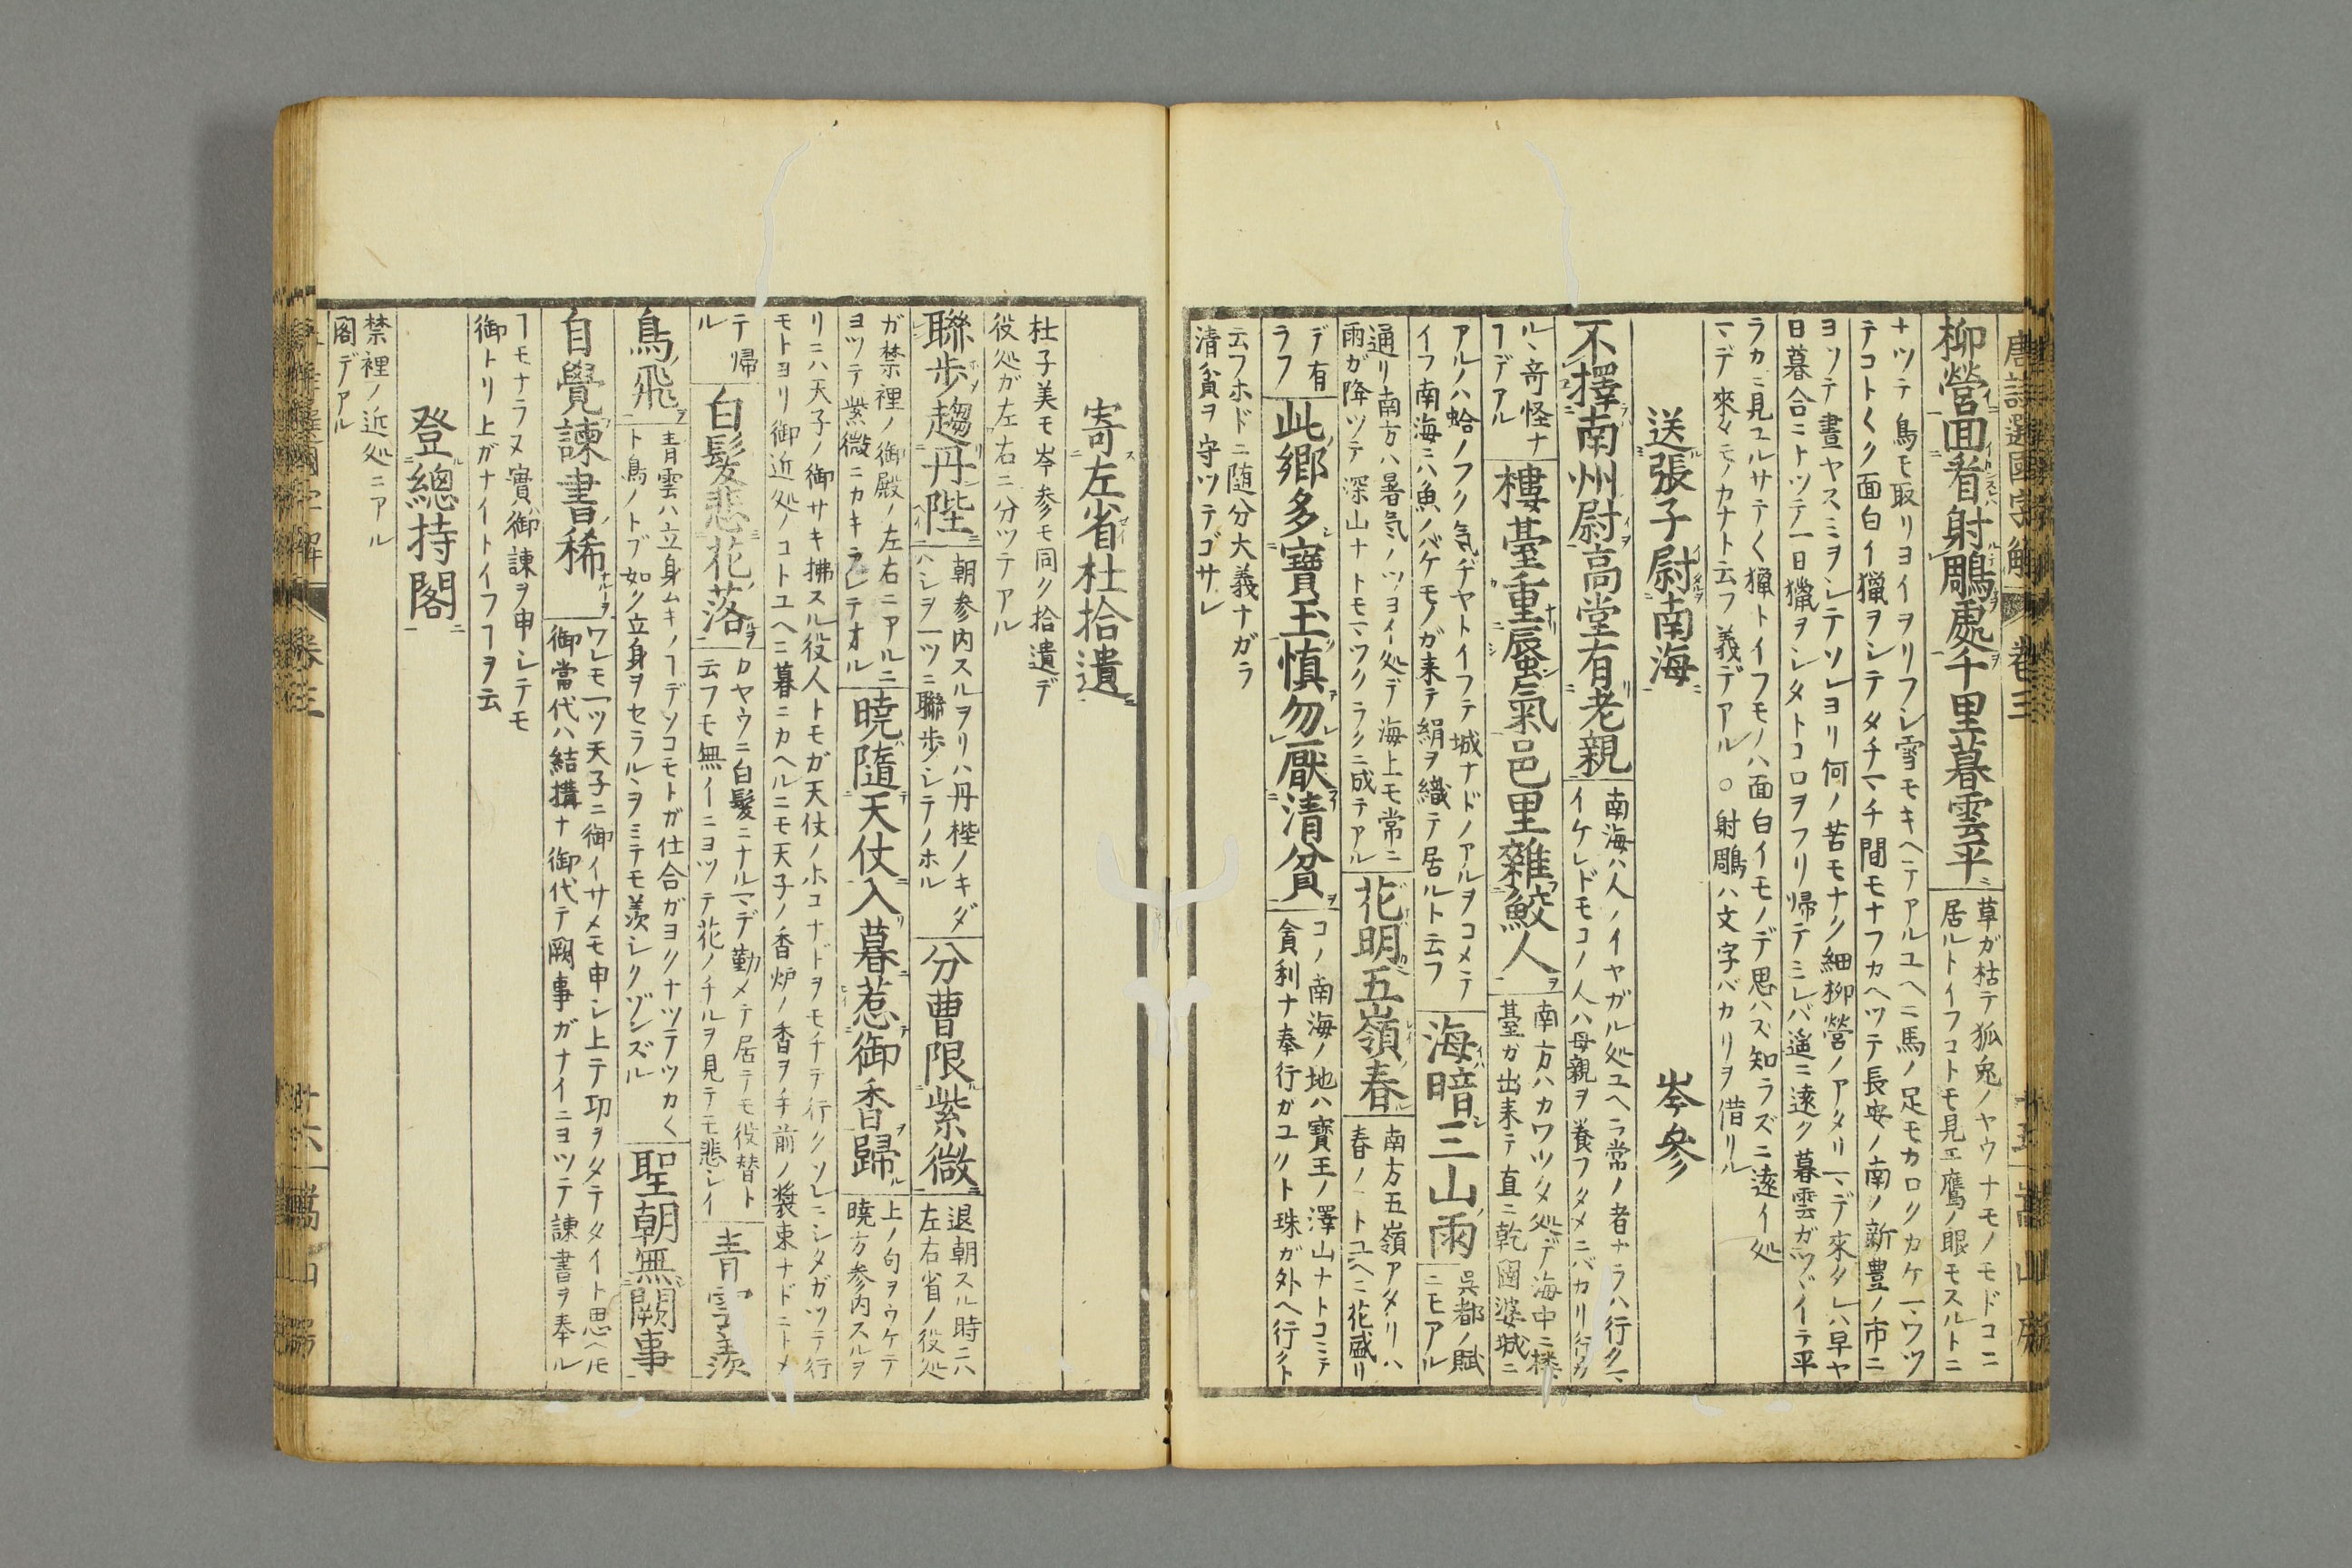 唐詩選國字解 卷三
柳營囬看射鵰處千里暮雲平 草ガ枯テ狐兎ノヤウナモノモドコニ
居ルトイフコトモ見エ鷹ノ眼モスルトニ
ナツテ鳥モ取リヨイヲリフレ雪モキヘテアルユヘニ馬ノ足モカロクカケマワツ
テコトく面白イ獵ヲシテタチマチ間モナフカヘツテ長安ノ南ノ新豊ノ市ニ
ヨツテ晝ヤスミヲシテソレヨリ何ノ苦モナク細柳營ノアタリマデ來タレハ早ヤ
日暮合ニトツテ一日獵ヲシタトコロヲフリ帰テミレバ遥ニ遠ク暮雲ガツヾイテ平
ラカニ見ユルサテく獵トイフモノハ面白イモノデ思ハズ知ラズニ遠イ処
マデ來タモノカナト云フ義デアル ○射鵰ハ文字バカリヲ借リル
送張子尉南海 岑參
不擇南州尉高堂有老親 南海ハ人ノイヤガル処ユヘニ常ノ者ナラハ行クマ
イケレドモコノ人ハ母親ヲ養フタメニバカリ行カ
ルヽ奇怪ナ
ヿデアル
樓臺重蜃氣邑里雜鮫人 南方ハカワツタ処デ海中ニ楼
臺ガ出来テ直ニ乾闥婆城ニ
アルハ蛤ノフク気ヂヤトイフテ城ナドノアルヲコメテ
イフ南海ニハ魚ノバケモノガ来テ絹ヲ織テ居ルト云フ
海暗三山雨 呉都ノ賦
ニモアル
通リ南方ハ暑気ノツヨイ処デ海上モ常ニ
雨ガ降ツテ深山ナトモマツクラクニ成テアル
花明五嶺春 南方五嶺アタリハ
春ノヿトユヘニ花盛リ
デ有
ラフ
此郷多寶玉慎勿厭清貧 コノ南海ノ地ハ寶玉ノ澤山ナトコニテ
貪利ナ奉行ガユクト珠ガ外ヘ行クト
云フホドニ随分大義ナガラ
清貧ヲ守ツテゴサレ
寄左省杜拾遺
杜子美モ岑参モ同ク拾遺デ
役処ガ左右ニ分ツテアル
聯歩趨丹陛 朝参内スルヲリハ丹陛ノキダ
ハシヲ一ツニ聯歩シテノホル
分曹限紫微 退朝スル時ニハ
左右省ノ役処
ガ禁裡ノ御殿ノ左右ニアルニ
ヨツテ紫微ニカキラレテオル
曉隨天仗入暮惹御香歸 上ノ句ヲウケテ
曉方参内スルヲ
リニハ天子ノ御サキ拂スル役人トモガ天仗ノホコナドヲモチテ行クソレニシタガツテ行
モトヨリ御近処ノコトユヘニ暮ニカヘルニモ天子ノ香炉ノ香ヲ手前ノ裝束ナドニトメ
テ帰
ル
白髮悲花落 カヤウニ白髪ニナルマデ勤メテ居テモ役替ト
云フモ無イニヨツテ花ノチルヲ見テモ悲シイ
青雲羨
鳥飛 青雲ハ立身ムキノヿデソコモトガ仕合ガヨクナツテツカく
ト鳥ノトブ如ク立身ヲセラルヽヲミテモ羨シクゾンズル
聖朝無闕事
自覺諫書稀 ワレモ一ツ天子ニ御イサメモ申シ上テ功ヲタテタイト思ヘモ
御當代ハ結構ナ御代テ闕事ガナイニヨツテ諫書ヲ奉ル
ヿモナラヌ實ハ御諫ヲ申シテモ
御トリ上ガナイトイフヿヲ云
登總持閣
禁裡ノ近処ニアル
閣デアル